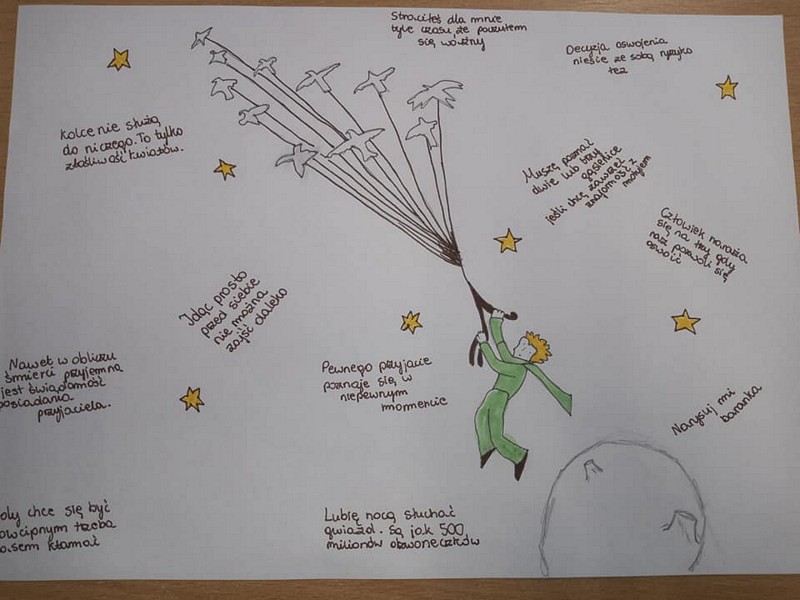 Straciłeś dla mnie
tyle czasu że poczułem
się ważny
Decyzja oswojenia
niesie ze sobą ryzyko
łez
Kolce nie służą
do niczego. To tylko
złośliwość kwiatów.
Muszę poznać
dwie lub trzy
gąsienice
jeśli chcę zawrzeć
znajomość z
motylem
Człowiek naraża
się na łzy gdy
raz pozwoli się
oswoić
Idąc prosto
przed siebie
nie można
zajść daleko
Nawet w obliczu
śmierci przyjemna
jest świadomość
posiadania
przyjaciela.
Pewnego przyjaciela
poznaje się w
niepewnym
momencie
Narysuj mi
baranka
gdy chce się być
dowcipnym trzeba
czasem kłamać
Lubię nocą słuchać
gwiazd. Są jak 500
milionów dzwoneczków